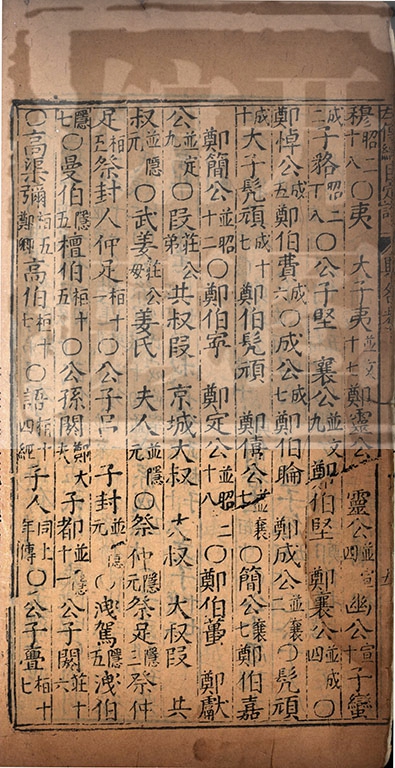 穆昭二十八○夷　大子夷並文十七鄭靈公　靈公並宣四　幽公宣十子蠻
成二子貉昭二十八○公子堅　襄公並文九　鄭伯堅　鄭襄公並成四○
鄭悼公成五鄭伯費成六○成公成七鄭伯睔　鄭成公並襄二○髡頑
成十大子髡頑成十七鄭伯髡頑　鄭僖公並襄七○簡公襄七鄭伯嘉
鄭簡公並昭十二○鄭伯寧　鄭定公並昭十八○鄭伯蠆　鄭獻
公並定九○段莊公弟共叔段　京城大叔　大叔　大叔段　共
叔並隱元○武姜莊公母姜氏　夫人並隱元○祭仲隱元祭足隱三祭仲
足桓五祭封人仲足桓十一○公子呂　子封並隱元○洩駕隱五洩伯
隱七○曼伯隱五檀伯桓十五○公孫閼鄭大夫子都並隱十一公子閼莊十六
○高渠彌桓五鄭卿高伯桓十七○語桓十四經子人同上年傳○公子亹桓十